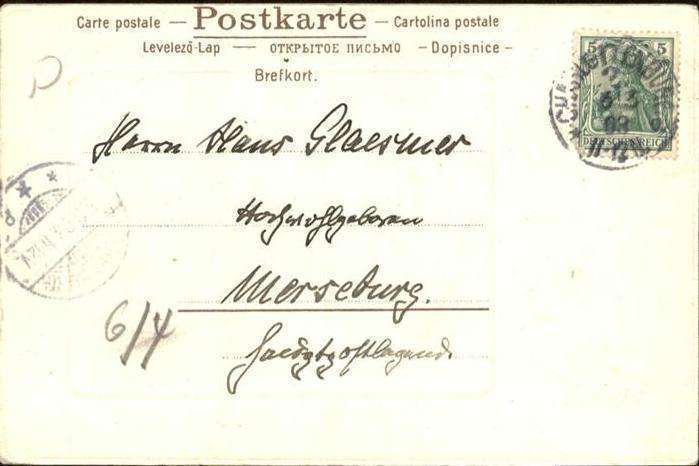 Carte postale – Postkarte – Cartolina postale
Levelező-Lap — ОТКРЫТОЕ ПИСЬМО – Dopisnice –
Brefkort.
5 5
DEUTSCHES REICH
Herrn Hans Glaesmer
Hochwohlgeboren
Merseburg.
6/4